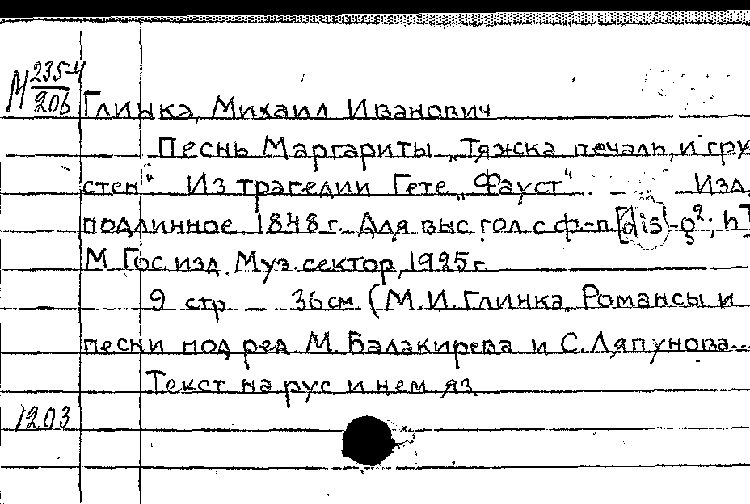 М 235-4/206
Глинка, Михаил Иванович
Песнь Маргариты „Тяжка печаль, и гру
стен" Из трагедии Гете „Фауст". Изд.
подлинное 1848 г. Для выс гол с ф-п. [dis¹-g²; h
М. Гос. изд. Муз. сектор, 1925 г.
9 стр 36 см (М.И. Глинка. Романсы и
песни под ред М. Балакирева и С. Ляпунова
Текст на рус и нем яз
1203